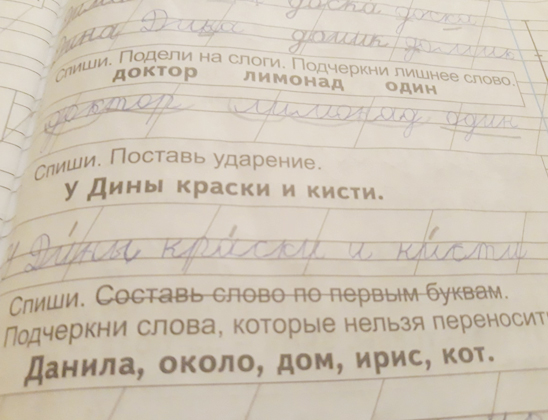 доска доски
Дина Дина домик домик
Спиши. Подели на слоги. Подчеркни лишнее слово.
доктор лимонад один
доктор лимонад один
Спиши. Поставь ударение.
У Дины краски и кисти.
У Ди́ны кра́ски и ки́сти
Спиши. Составь слово по первым буквам.
Подчеркни слова, которые нельзя переносить
Данила, около, дом, ирис, кот.